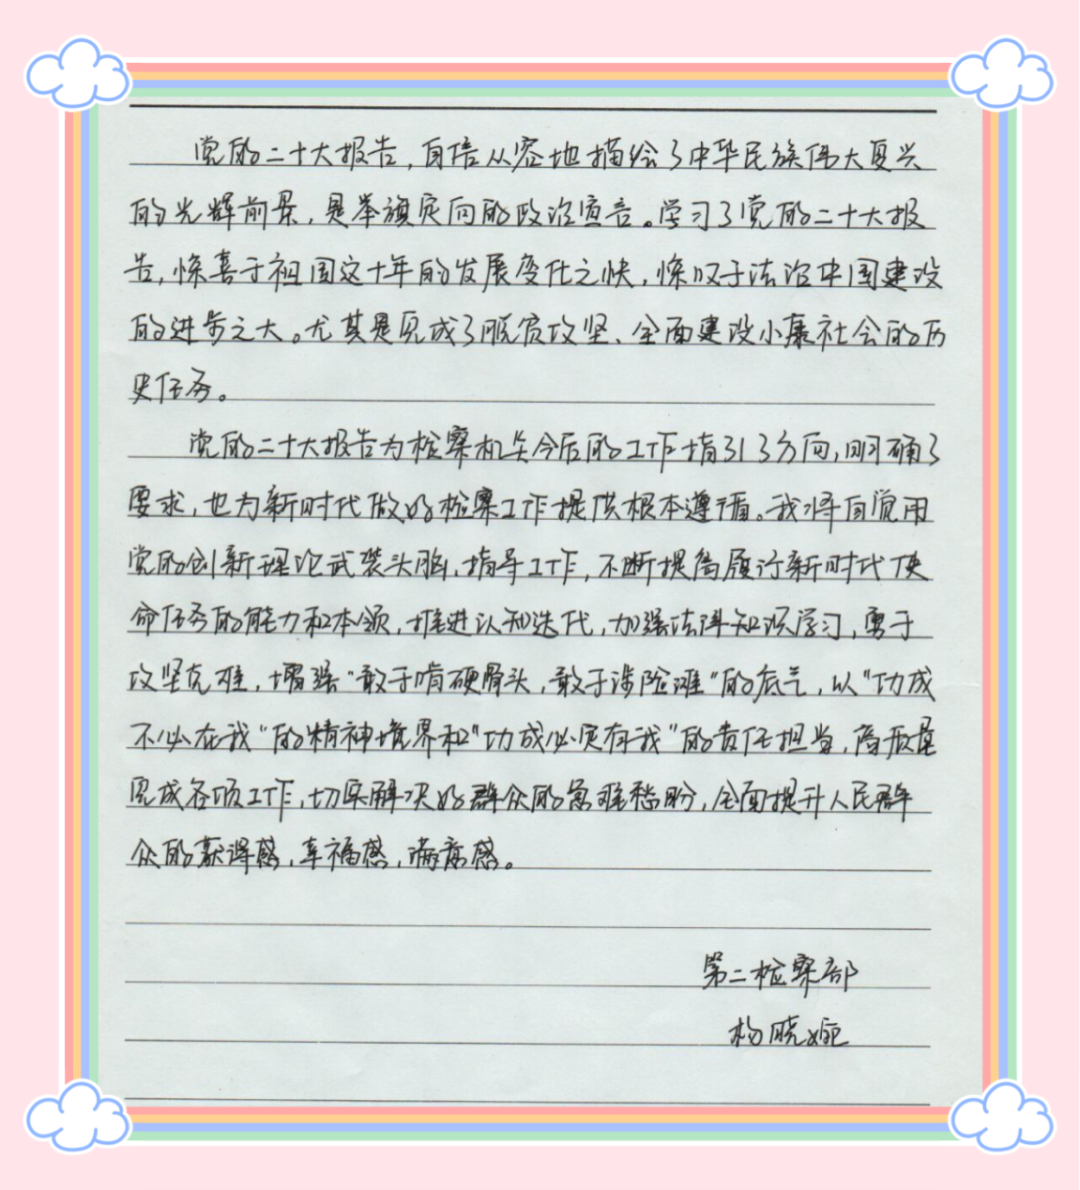 党的二十大报告，自信从容地描绘了中华民族伟大复兴
的光辉前景，是举旗定向的政治宣言。学习了党的二十大报
告，惊喜于祖国这十年的发展变化之快，惊叹于法治中国建设
的进步之大。尤其是完成了脱贫攻坚、全面建设小康社会的历
史任务。
党的二十大报告为检察机关今后的工作指引了方向，明确了
要求，也为新时代做好检察工作提供根本遵循。我将自觉用
党的创新理论武装头脑、指导工作，不断提高履行新时代使
命任务的能力和本领，推进认知迭代，加强法律知识学习，勇于
攻坚克难，增强“敢于啃硬骨头，敢于涉险滩”的底气，以“功成
不必在我”的精神境界和“功成必定有我”的责任担当，高质量
完成各项工作，切实解决好群众的急难愁盼，全面提升人民群
众的获得感，幸福感，满意感。
第二检察部
杨晓婉